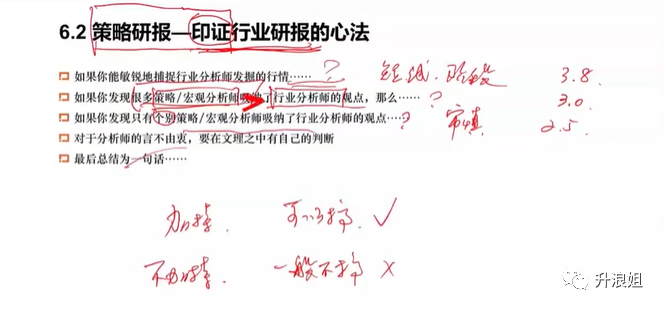 6.2 策略研报—印证行业研报的心法
如果你能敏锐地捕捉行业分析师发掘的行情…… ?
短线.阶段 3.8
如果你发现很多策略/宏观分析师吸纳了行业分析师的观点，那么…… ?
3.0
如果你发现只有个别策略/宏观分析师吸纳了行业分析师的观点…… ?
审慎 2.5
对于分析师的言不由衷，要在文理之中有自己的判断
最后总结为一句话……
加持. 可以搞 ✓
不加持. 一般不搞 ×
升浪姐